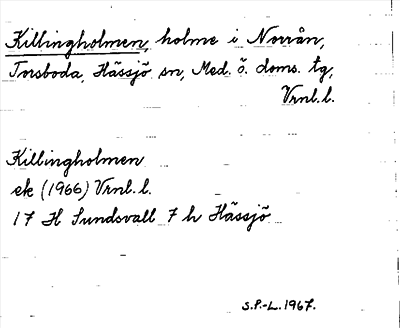 Killingholmen, holme i Norrån,
Torsboda, Hässjö sn, Med. ö. doms. tg,
Vrnl.l.
Killingholmen
ek (1966) Vrnl.l.
17 H Sundsvall 7 h Hässjö
S.P.-L. 1967.